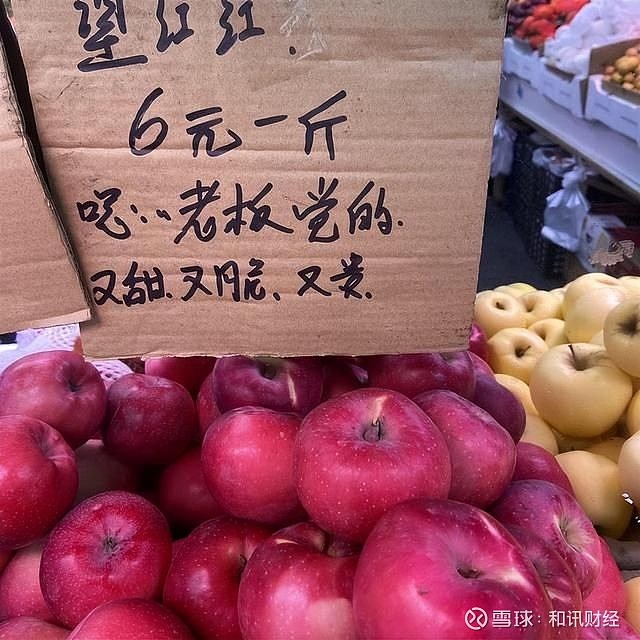 红红.
6元一斤
呃...老板觉的.
又甜.又脆.又贵.
雪球:和讯财经